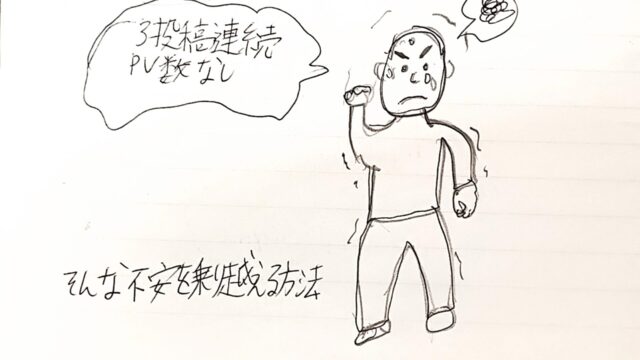 3投稿連続
PV数なし
そんな不安を乗り越える方法